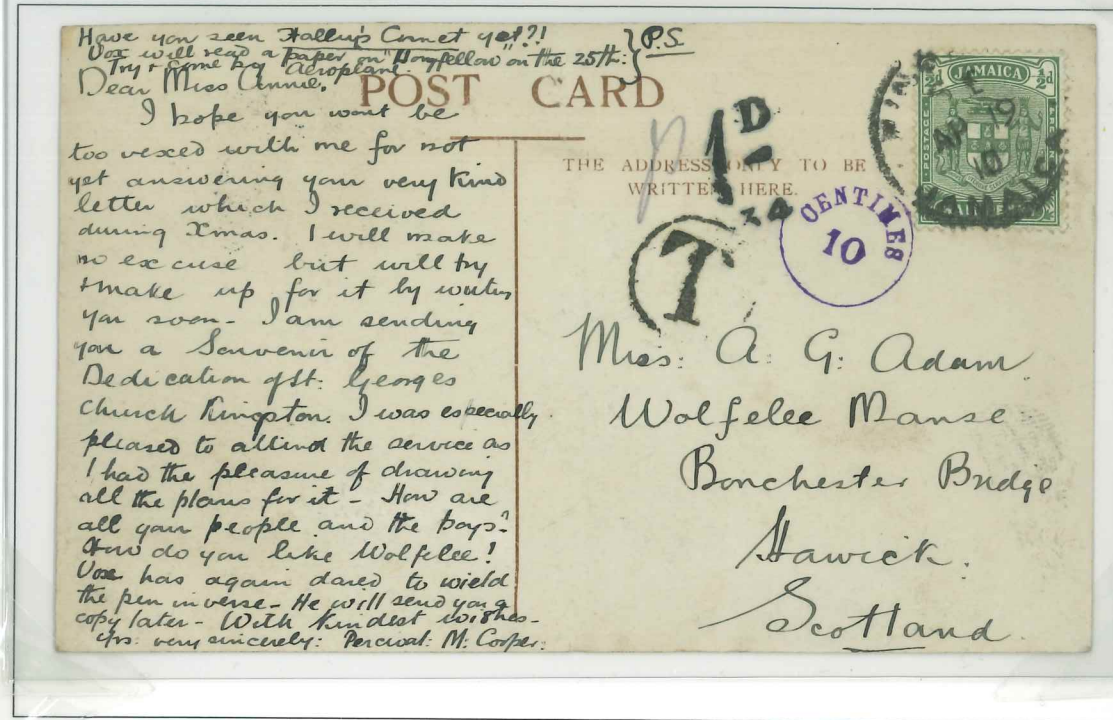 Have you seen Halley's Comet yet?! } P.S.
Vox will read a paper on "Longfellow" on the 25th:
Try & come by Aeroplane.
Dear Miss Annie.
POST CARD
I hope you wont be
too vexed with me for not
yet answering your very kind
letter which I received
during Xmas. I will make
no excuse but will try
& make up for it by writing
you soon - I am sending
you a Souvenir of the
Dedication of St. Georges
Church Kingston. I was especially
pleased to attend the service as
I had the pleasure of drawing
all the plans for it - How are
all your people and the boys?
How do you like Wolfelee!
Vox has again dared to wield
the pen in verse - He will send you a
copy later - With kindest wishes -
Yrs: very sincerely: Percival: M. Cooper:
THE ADDRESS ONLY TO BE
WRITTEN HERE.
1D
34
T
CENTIMES
10
JAMAICA
½d ½d
POSTAGE
AP 19
10
JAMAICA
Miss: A: G: Adam
Wolfelee Manse
Bonchester Bridge
Hawick.
Scotland.